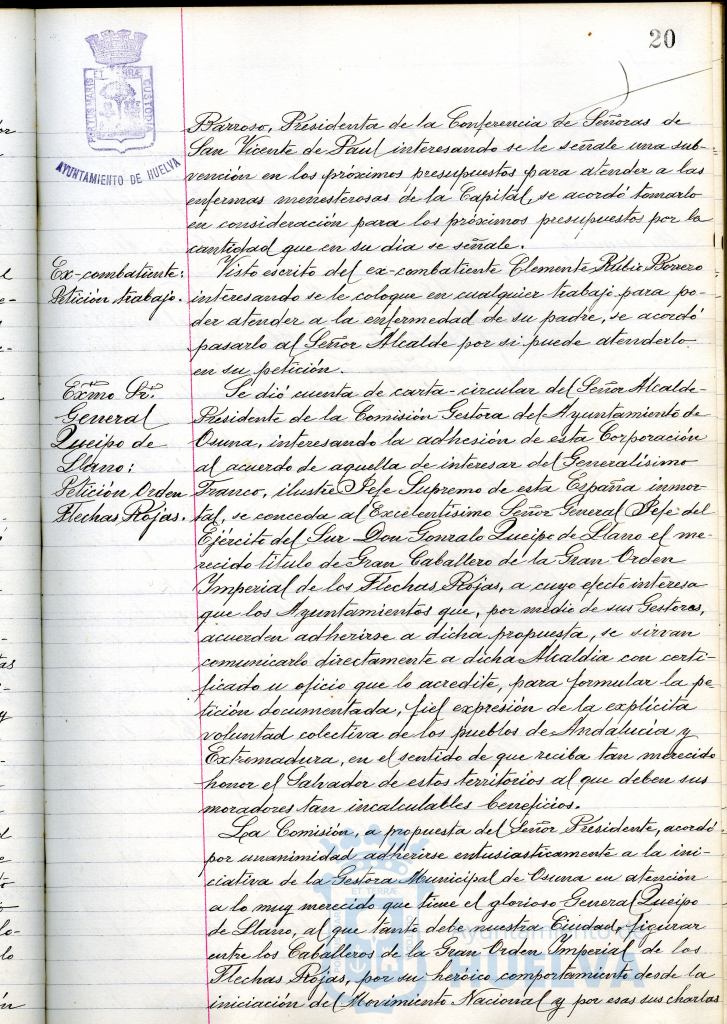 20
PORTUS MARIS ET TERRÆ CUSTODIA
AYUNTAMIENTO DE HUELVA
Barroso, Presidenta de la Conferencia de Señoras de
San Vicente de Paul interesando se le señale una sub-
vención en los próximos presupuestos para atender a las
enfermas menesterosas de la Capital, se acordó tomarlo
en consideración para los próximos presupuestos por la
cantidad que en su dia se señale.
Ex-combatiente:
Petición trabajo.
Visto escrito del ex-combatiente Clemente Rubio Romero
interesando se le coloque en cualquier trabajo para po-
der atender a la enfermedad de su padre, se acordó
pasarlo al Señor Alcalde por si puede atenderlo
en su petición.
Exmo Sr.
General
Queipo de
Llano:
Petición Orden
Flechas Rojas.
Se dió cuenta de carta-circular del Señor Alcalde-
Presidente de la Comisión Gestora del Ayuntamiento de
Osuna, interesando la adhesión de esta Corporación
al acuerdo de aquella de interesar del Generalísimo
Franco, ilustre Jefe Supremo de esta España inmor-
tal, se conceda al Excelentísimo Señor General Jefe del
Ejército del Sur Don Gonzalo Queipo de Llano el me-
recido titulo de Gran Caballero de la Gran Orden
Imperial de los Flechas Rojas, a cuyo efecto interesa
que los Ayuntamientos que, por medio de sus Gestores,
acuerden adherirse a dicha propuesta, se sirvan
comunicarlo directamente a dicha Alcaldia con certi-
ficado u oficio que lo acredite, para formular la pe-
tición documentada, fiel expresión de la explícita
voluntad colectiva de los pueblos de Andalucía y
Extremadura, en el sentido de que reciba tan merecido
honor el Salvador de estos territorios al que deben sus
moradores tan incalculables beneficios.
La Comisión, a propuesta del Señor Presidente, acordó
por unanimidad adherirse entusiasticamente a la ini-
ciativa de la Gestora Municipal de Osuna en atención
a lo muy merecido que tiene el glorioso General Queipo
de Llano, al que tanto debe nuestra Ciudad, figurar
entre los Caballeros de la Gran Orden Imperial de los
Flechas Rojas, por su heróico comportamiento desde la
iniciación del Movimiento Nacional y por esas sus charlas
Ayuntamiento de
HUELVA